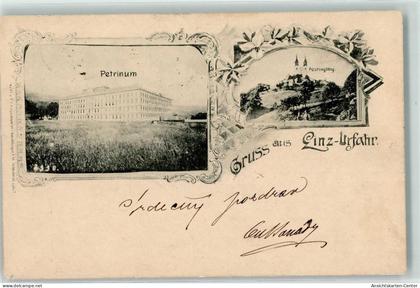 Petrinum
Pöstlingberg
Gruss aus Linz-Urfahr.
srdečný pozdrav
Ansichtskarten-Center